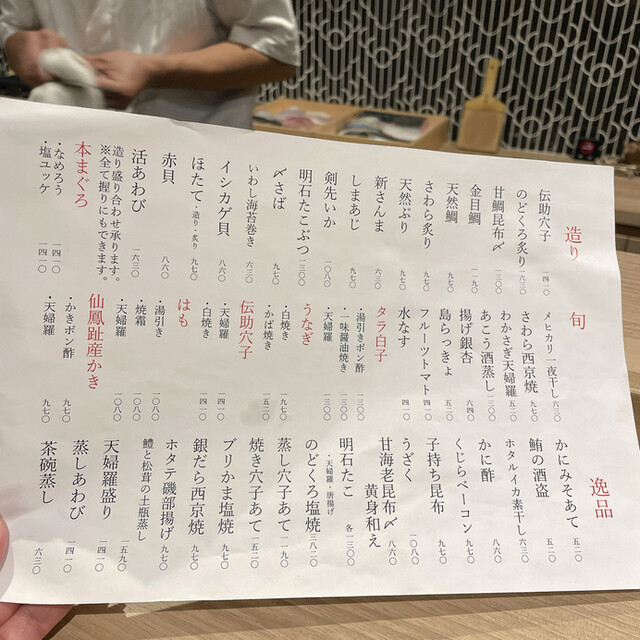 造り
伝助穴子 一四一〇
のどくろ炙り 一六三〇
甘鯛昆布〆 一三〇〇
金目鯛 一一九〇
天然鯛 九七〇
さわら炙り 九七〇
天然ぶり 九七〇
新さんま 六三〇
しまあじ
剣先いか 一〇八〇
明石たこぶつ 一三〇〇
〆さば 九七〇
いわし海苔巻き 六三〇
イシカゲ貝 八六〇
ほたて・造り・炙り 九七〇
赤貝 八六〇
活あわび 一六三〇
造り盛り合わせ承ります。
※全て握りにもできます。
本まぐろ
・なめろう 一四一〇
・塩ユッケ 一四一〇
旬
メヒカリ一夜干し 六三〇
さわら西京焼 九七〇
わかさぎ天婦羅 五二〇
あこう酒蒸し 一三〇〇
揚げ銀杏 六四〇
島らっきょ 五二〇
フルーツトマト 四一〇
水なす 四一〇
タラ白子
・湯引きポン酢 一三〇〇
・一味醤油焼き 一三〇〇
・天婦羅 一三〇〇
うなぎ
・白焼き 一九七〇
・かば焼き 一五二〇
伝助穴子
・天婦羅 一四一〇
・白焼き 一四一〇
はも
・湯引き 一〇八〇
・焼霜 一〇八〇
・天婦羅 一〇八〇
仙鳳趾産かき
・かきポン酢 九七〇
・天婦羅 九七〇
逸品
かにみそあて 五二〇
鮪の酒盗 五二〇
ホタルイカ素干し 六三〇
かに酢 八六〇
くじらベーコン 九七〇
子持ち昆布 九七〇
うざく 一〇八〇
甘海老昆布〆 黄身和え 八六〇
明石たこ
・天婦羅・唐揚げ 各一三〇〇
のどくろ塩焼 三八二〇
蒸し穴子あて 一一九〇
焼き穴子あて 一五二〇
ブリかま塩焼 九七〇
銀だら西京焼 九七〇
ホタテ磯部揚げ 九七〇
鱧と松茸の土瓶蒸し
天婦羅盛り 一五九〇
蒸しあわび 一四一〇
茶碗蒸し 六三〇